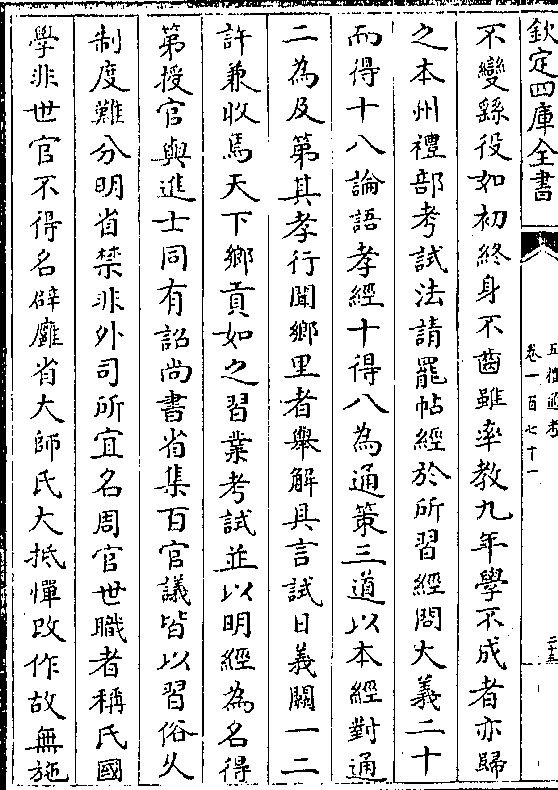 欽定四庫全書
五禮通考
卷一百七十一
二十五
不變繇役如初終身不齒雖率教九年學不成者亦歸
之本州禮部考試法請罷帖經於所習經問大義二十
而得十八論語孝經十得八為通策三道以本經對通
二為及第其孝行聞鄉里者舉解具言試日義闕一二
許兼收焉天下鄉貢如之習業考試並以明經為名得
第授官與進士同有詔尚書省集百官議皆以習俗久
制度難分明省禁非外司所宜名周官世職者稱氏國
學非世官不得名辟廱省大師氏大抵憚改作故無施